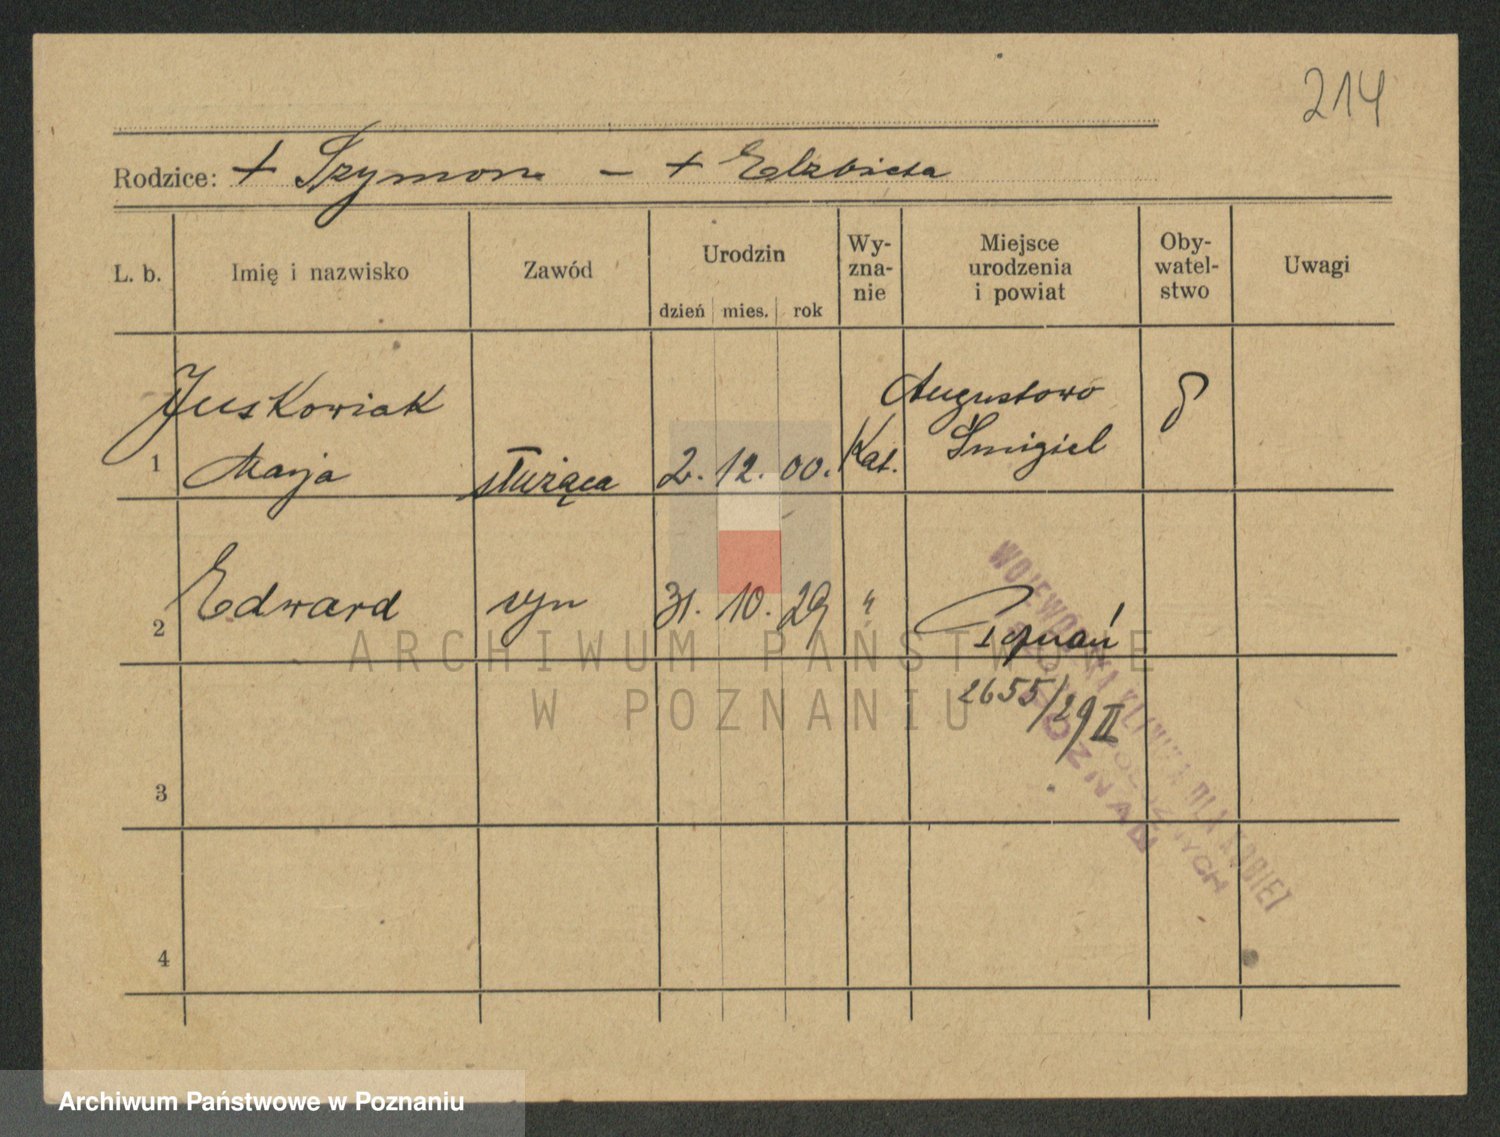 214
Rodzice: + Szymon - + Elzbieta
L. b.
Imię i nazwisko
Zawód
Urodzin
dzień mies. rok
Wy-
zna-
nie
Miejsce
urodzenia
i powiat
Oby-
watel-
stwo
Uwagi
Juskowiak
Marja
1
służąca
2. 12. 00.
Kat.
Augustowo
Śmigiel
2
Edward
syn
31. 10. 29
"
Poznań
2655/29 II
3
4
WOJEWÓDZKA KLINIKA DLA KOBIET
POZNAŃ
ARCHIWUM PAŃSTWOWE
W POZNANIU
Archiwum Państwowe w Poznaniu